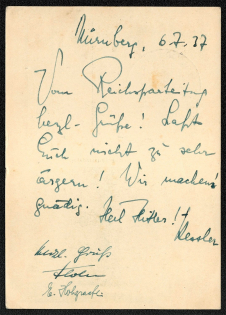 Nürnberg, 6.7.37
Vom Reichsparteitag
herzl. Grüße! Laßt
Euch nicht zu sehr
ärgern! Wir machen's
gnädig. Heil Hitler!
Kessler
herzl. Gruß